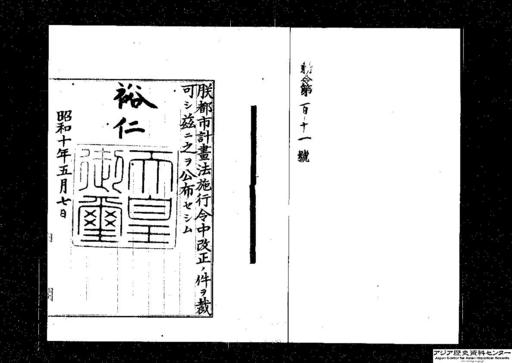 勅令第百十一號
朕都市計畫法施行令中改正ノ件ヲ裁
可シ茲ニ之ヲ公布セシム
裕仁
天皇御璽
昭和十年五月七日
内閣
アジア歴史資料センター
Japan Center for Asian Historical Records